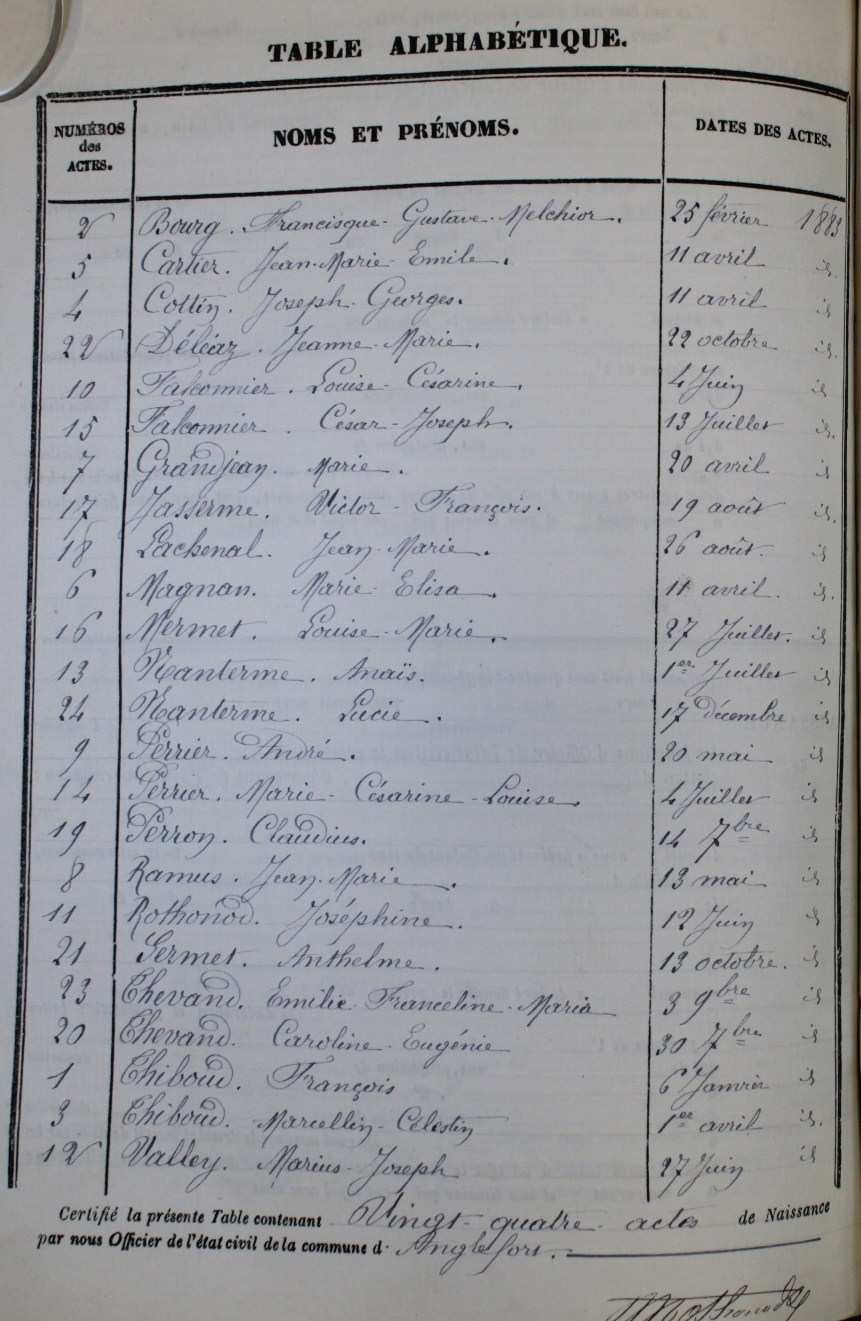 TABLE ALPHABÉTIQUE.
NUMÉROS des ACTES. NOMS ET PRÉNOMS. DATES DES ACTES.
2 Bourg. Francisque-Gustave-Melchior. 25 février 1883
5 Cartier. Jean-Marie-Emile. 11 avril id.
4 Cottin. Joseph-Georges. 11 avril id
22 Déléaz. Jeanne-Marie. 22 octobre id.
10 Falconnier. Louise-Césarine. 4 Juin id
15 Falconnier. César-Joseph. 13 Juillet id.
7 Grandjean. Marie. 20 avril id
17 Jasserme. Victor-François. 19 août id.
18 Lachenal. Jean-Marie. 26 août. id
6 Magnan. Marie-Elisa. 11 avril. id.
16 Mermet. Louise-Marie. 27 Juillet. id
13 Nanterme. Anaïs. 1er Juillet id
24 Nanterme. Lucie. 17 décembre id
9 Perrier. André. 20 mai id
14 Perrier. Marie-Césarine-Louise. 4 Juillet id
19 Perron. Claudius. 14 7bre id
8 Ramus. Jean-Marie. 13 mai id
11 Rothonod. Joséphine. 12 Juin id
21 Sermet. Anthelme. 13 octobre. id
23 Thevand. Emilie-Franceline-Maria 3 9bre id
20 Thevand. Caroline-Eugénie 30 7bre id
1 Thiboud. François 6 Janvier id
3 Thiboud. Marcellin-Célestin 1er avril id.
12 Valley. Marius-Joseph 27 Juin id
Certifié la présente Table contenant Vingt-quatre actes de Naissance
par nous Officier de l'état civil de la commune d' Anglefort.